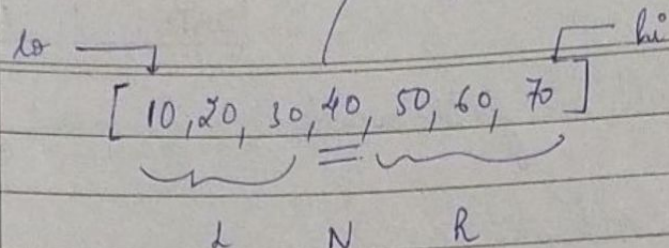 lo hi
[ 10, 20, 30, 40, 50, 60, 70 ]
L N R